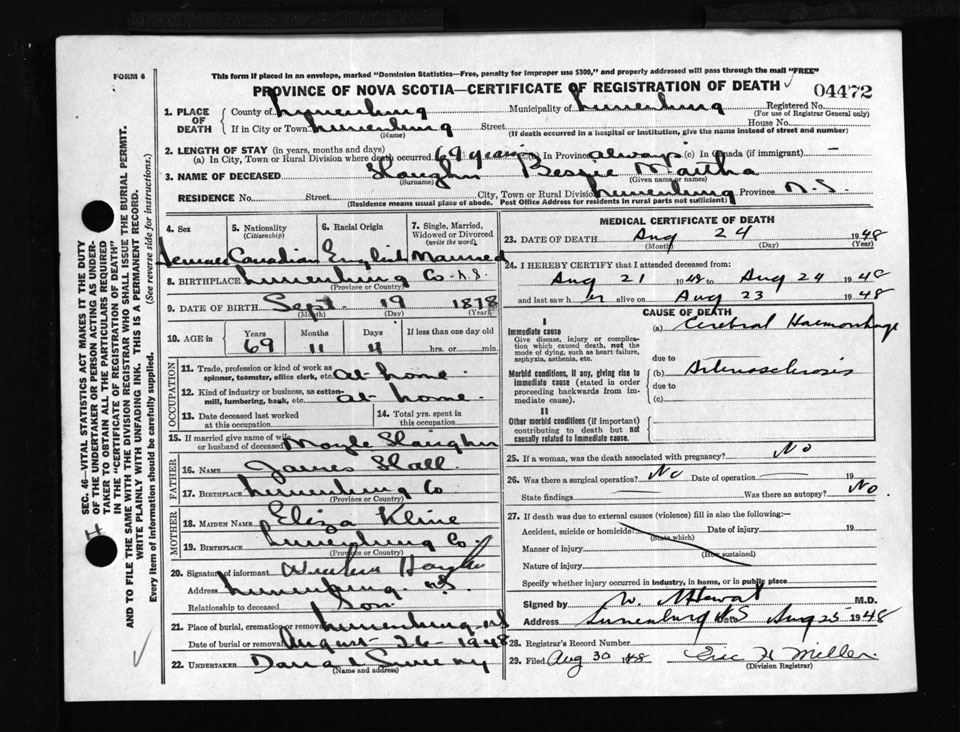 FORM 6
This form if placed in an envelope, marked "Dominion Statistics—Free, penalty for improper use $300," and properly addressed will pass through the mail "FREE"
PROVINCE OF NOVA SCOTIA—CERTIFICATE OF REGISTRATION OF DEATH 04472
SEC. 46—VITAL STATISTICS ACT MAKES IT THE DUTY
OF THE UNDERTAKER OR PERSON ACTING AS UNDER-
TAKER TO OBTAIN ALL THE PARTICULARS REQUIRED
IN THE "CERTIFICATE OF REGISTRATION OF DEATH"
AND TO FILE THE SAME WITH THE DIVISION REGISTRAR WHO SHALL ISSUE THE BURIAL PERMIT.
WRITE PLAINLY WITH UNFADING INK. THIS IS A PERMANENT RECORD.
Every item of information should be carefully supplied. (See reverse side for instructions.)
1. PLACE OF DEATH County of Lunenburg Municipality of Lunenburg Registered No.
(For use of Registrar General only)
If in City or Town Lunenburg Street House No.
(Name) (If death occurred in a hospital or institution, give the name instead of street and number)
2. LENGTH OF STAY (in years, months and days)
(a) In City, Town or Rural Division where death occurred 69 years (b) In Province always (c) In Canada (if immigrant) —
3. NAME OF DECEASED Bessie Martha
(Surname) (Given name or names)
RESIDENCE No. Street City, Town or Rural Division Lunenburg Province N.S.
(Residence means usual place of abode. Post Office Address for residents in rural parts not sufficient)
4. Sex 5. Nationality (Citizenship) 6. Racial Origin 7. Single, Married, Widowed or Divorced (write the word)
Female Canadian English Married
8. BIRTHPLACE Lunenburg Co. N.S.
(Province or Country)
9. DATE OF BIRTH Sept. 19 1878
(Month) (Day) (Year)
10. AGE in Years Months Days If less than one day old
69 11 4 hrs. or min.
OCCUPATION
11. Trade, profession or kind of work as spinner, teamster, office clerk, etc. at home
12. Kind of industry or business, as cotton-mill, lumbering, bank, etc. at home
13. Date deceased last worked at this occupation 14. Total yrs. spent in this occupation
15. If married give name of wife or husband of deceased
FATHER
16. Name James
17. Birthplace Lunenburg Co
(Province or Country)
MOTHER
18. Maiden Name Eliza Kline
19. Birthplace Lunenburg Co.
(Province or Country)
20. Signature of informant
Address Lunenburg N.S.
Relationship to deceased Son
21. Place of burial, cremation or removal Lunenburg N.S.
Date of burial or removal August 26 1948
22. UNDERTAKER
(Name and address)
MEDICAL CERTIFICATE OF DEATH
23. DATE OF DEATH Aug 24 1948
(Month) (Day)
24. I HEREBY CERTIFY that I attended deceased from:
Aug 21 1948 to Aug 24 1948
and last saw her alive on Aug 23 1948
CAUSE OF DEATH
I
Immediate cause (a) Cerebral Haemorrhage
Give disease, injury or complication which caused death, not the mode of dying, such as heart failure, asphyxia, asthenia, etc.
due to
Morbid conditions, if any, giving rise to immediate cause (stated in order proceeding backwards from immediate cause). (b) Arteriosclerosis
due to
(c)
II
Other morbid conditions (if important) contributing to death but not causally related to immediate cause.
25. If a woman, was the death associated with pregnancy? No
26. Was there a surgical operation? No Date of operation — 19
State findings — Was there an autopsy? No.
27. If death was due to external causes (violence) fill in also the following:—
Accident, suicide or homicide? Date of injury 19
(State which)
Manner of injury
(How sustained)
Nature of injury
Specify whether injury occurred in industry, in home, or in public place
Signed by M.D.
Address Lunenburg NS Date Aug 25 1948
28. Registrar's Record Number
29. Filed Aug 30 1948 Eric H Miller.
(Division Registrar)